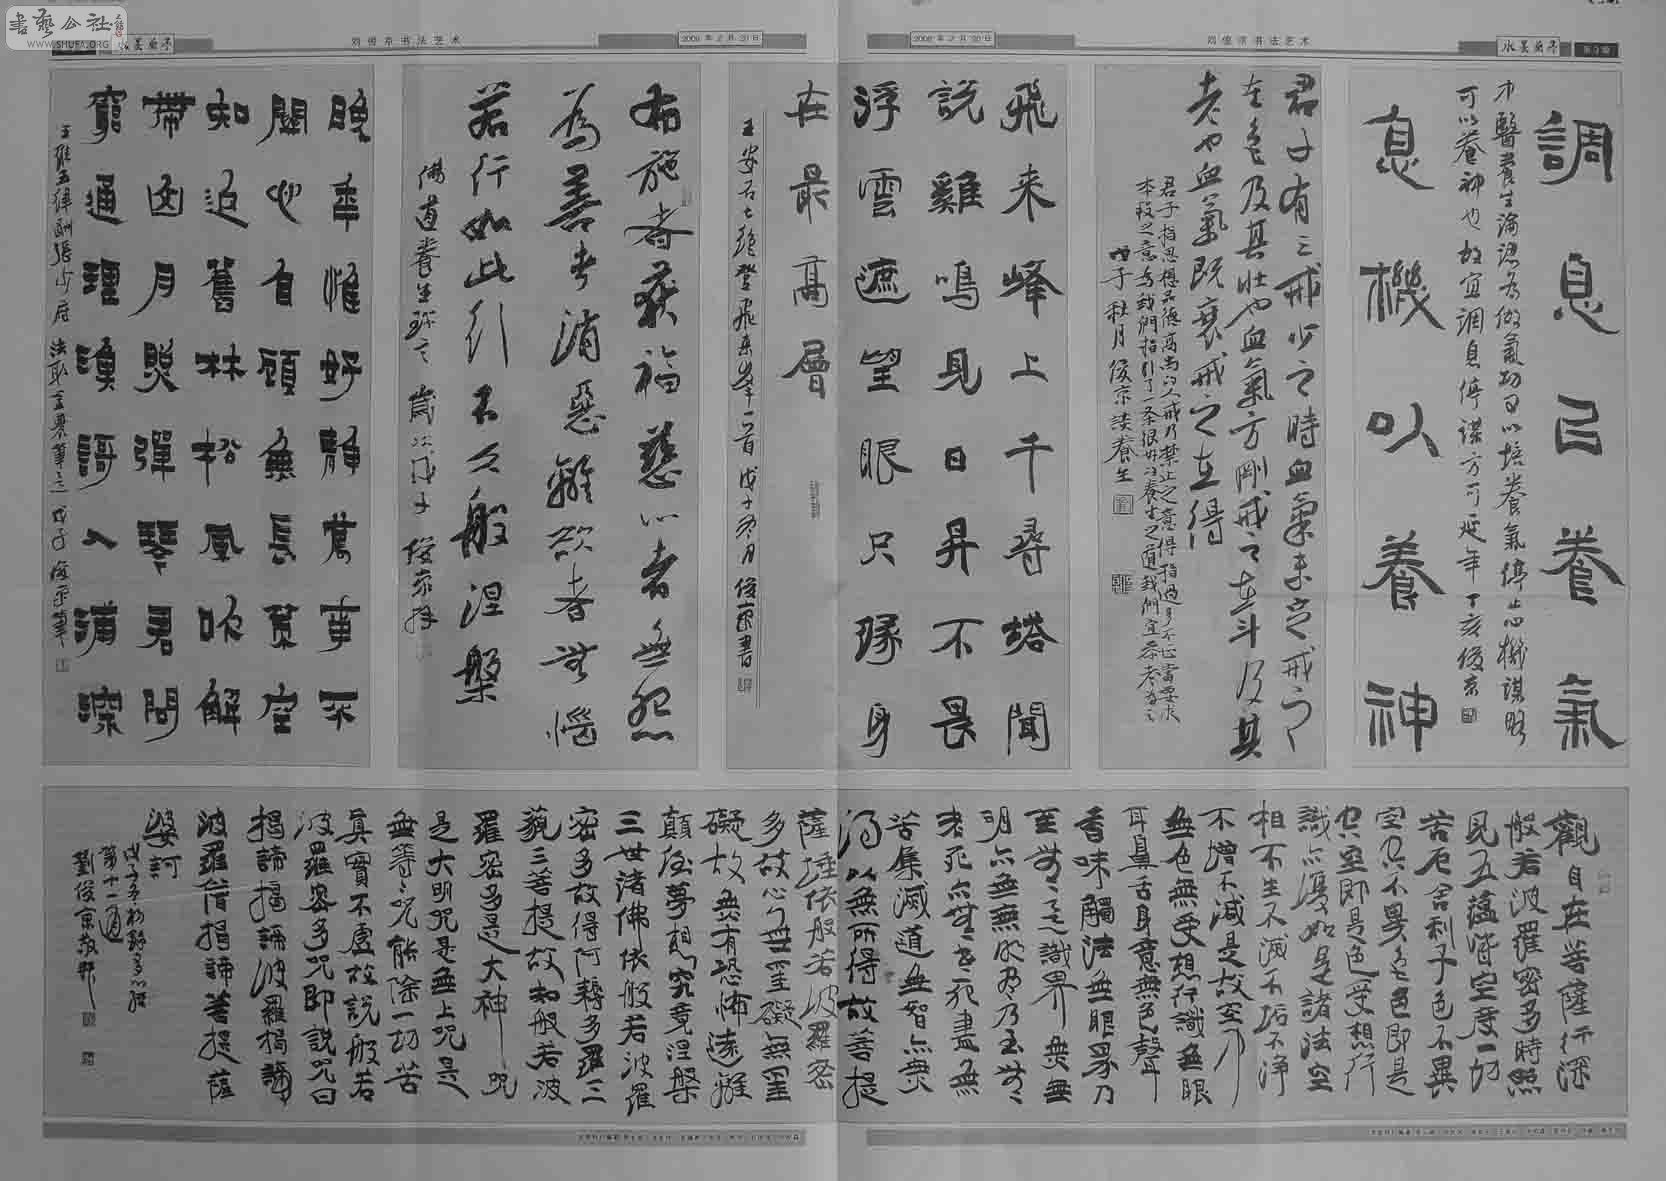 書藝公社
WWW.SHUFA.ORG
水墨
刘俊京书法艺术
2009年2月20日
2009年2月20日
刘俊京书法艺术
水墨
調息己養氣
息機以養神
中醫養生論認為做氣功可以培養氣停止心機謀略
可以養神也故宜調息停謀方可延年丁亥俊京
君子有三戒少之時血氣未定戒之
在色及其壯也血氣方剛戒之在斗及其
老也血氣既衰戒之在得
君子指思想品德高尚的人戒乃禁止之意得指過多不心當要求
本段之意為我們指引了一条很好的養生之道我們宜
戊子秋月俊京談養生
飛来峰上千尋塔聞
說雞鳴見日昇不畏
浮雲遮望眼只緣身
在最高層
王安石七絶登飛来峰一首戊子冬月俊京書
布施者獲福慈心者無怨
為善者消惡離欲者無惱
若行如此行不久般涅槃
佛道養生
歲次戊子俊京
晚年惟好靜萬事不
關心自顧無長策空
知返舊林松風吹解
帶山月照彈琴君問
窮通理漁謌入浦深
王維五律酬張少府法取金農筆意戊子俊京筆
觀自在菩薩行深
般若波羅密多時照
見五蕴皆空度一切
苦厄舍利子色不異
空空不異色色即是
空空即是色受想行
識亦復如是諸法空
相不生不滅不垢不淨
不增不減是故空中
無色無受想行識無眼
耳鼻舌身意無色聲
香味觸法無眼界乃
至無意識界無無
明亦無無明盡乃至無
老死亦無老死盡無
苦集滅道無智亦無
得以無所得故菩提
薩埵依般若波羅密
多故心無罣礙無罣
礙故無有恐怖遠離
顛倒夢想究竟涅槃
三世諸佛依般若波羅
密多故得阿耨多羅三
藐三菩提故知般若波
羅密多是大神咒
是大明咒是無上咒是
無等等咒能除一切苦
真實不虛故説般若
波羅密多咒即説咒曰
揭諦揭諦波羅揭諦
波羅僧揭諦菩提薩
婆訶
第十一通
劉俊京敬書